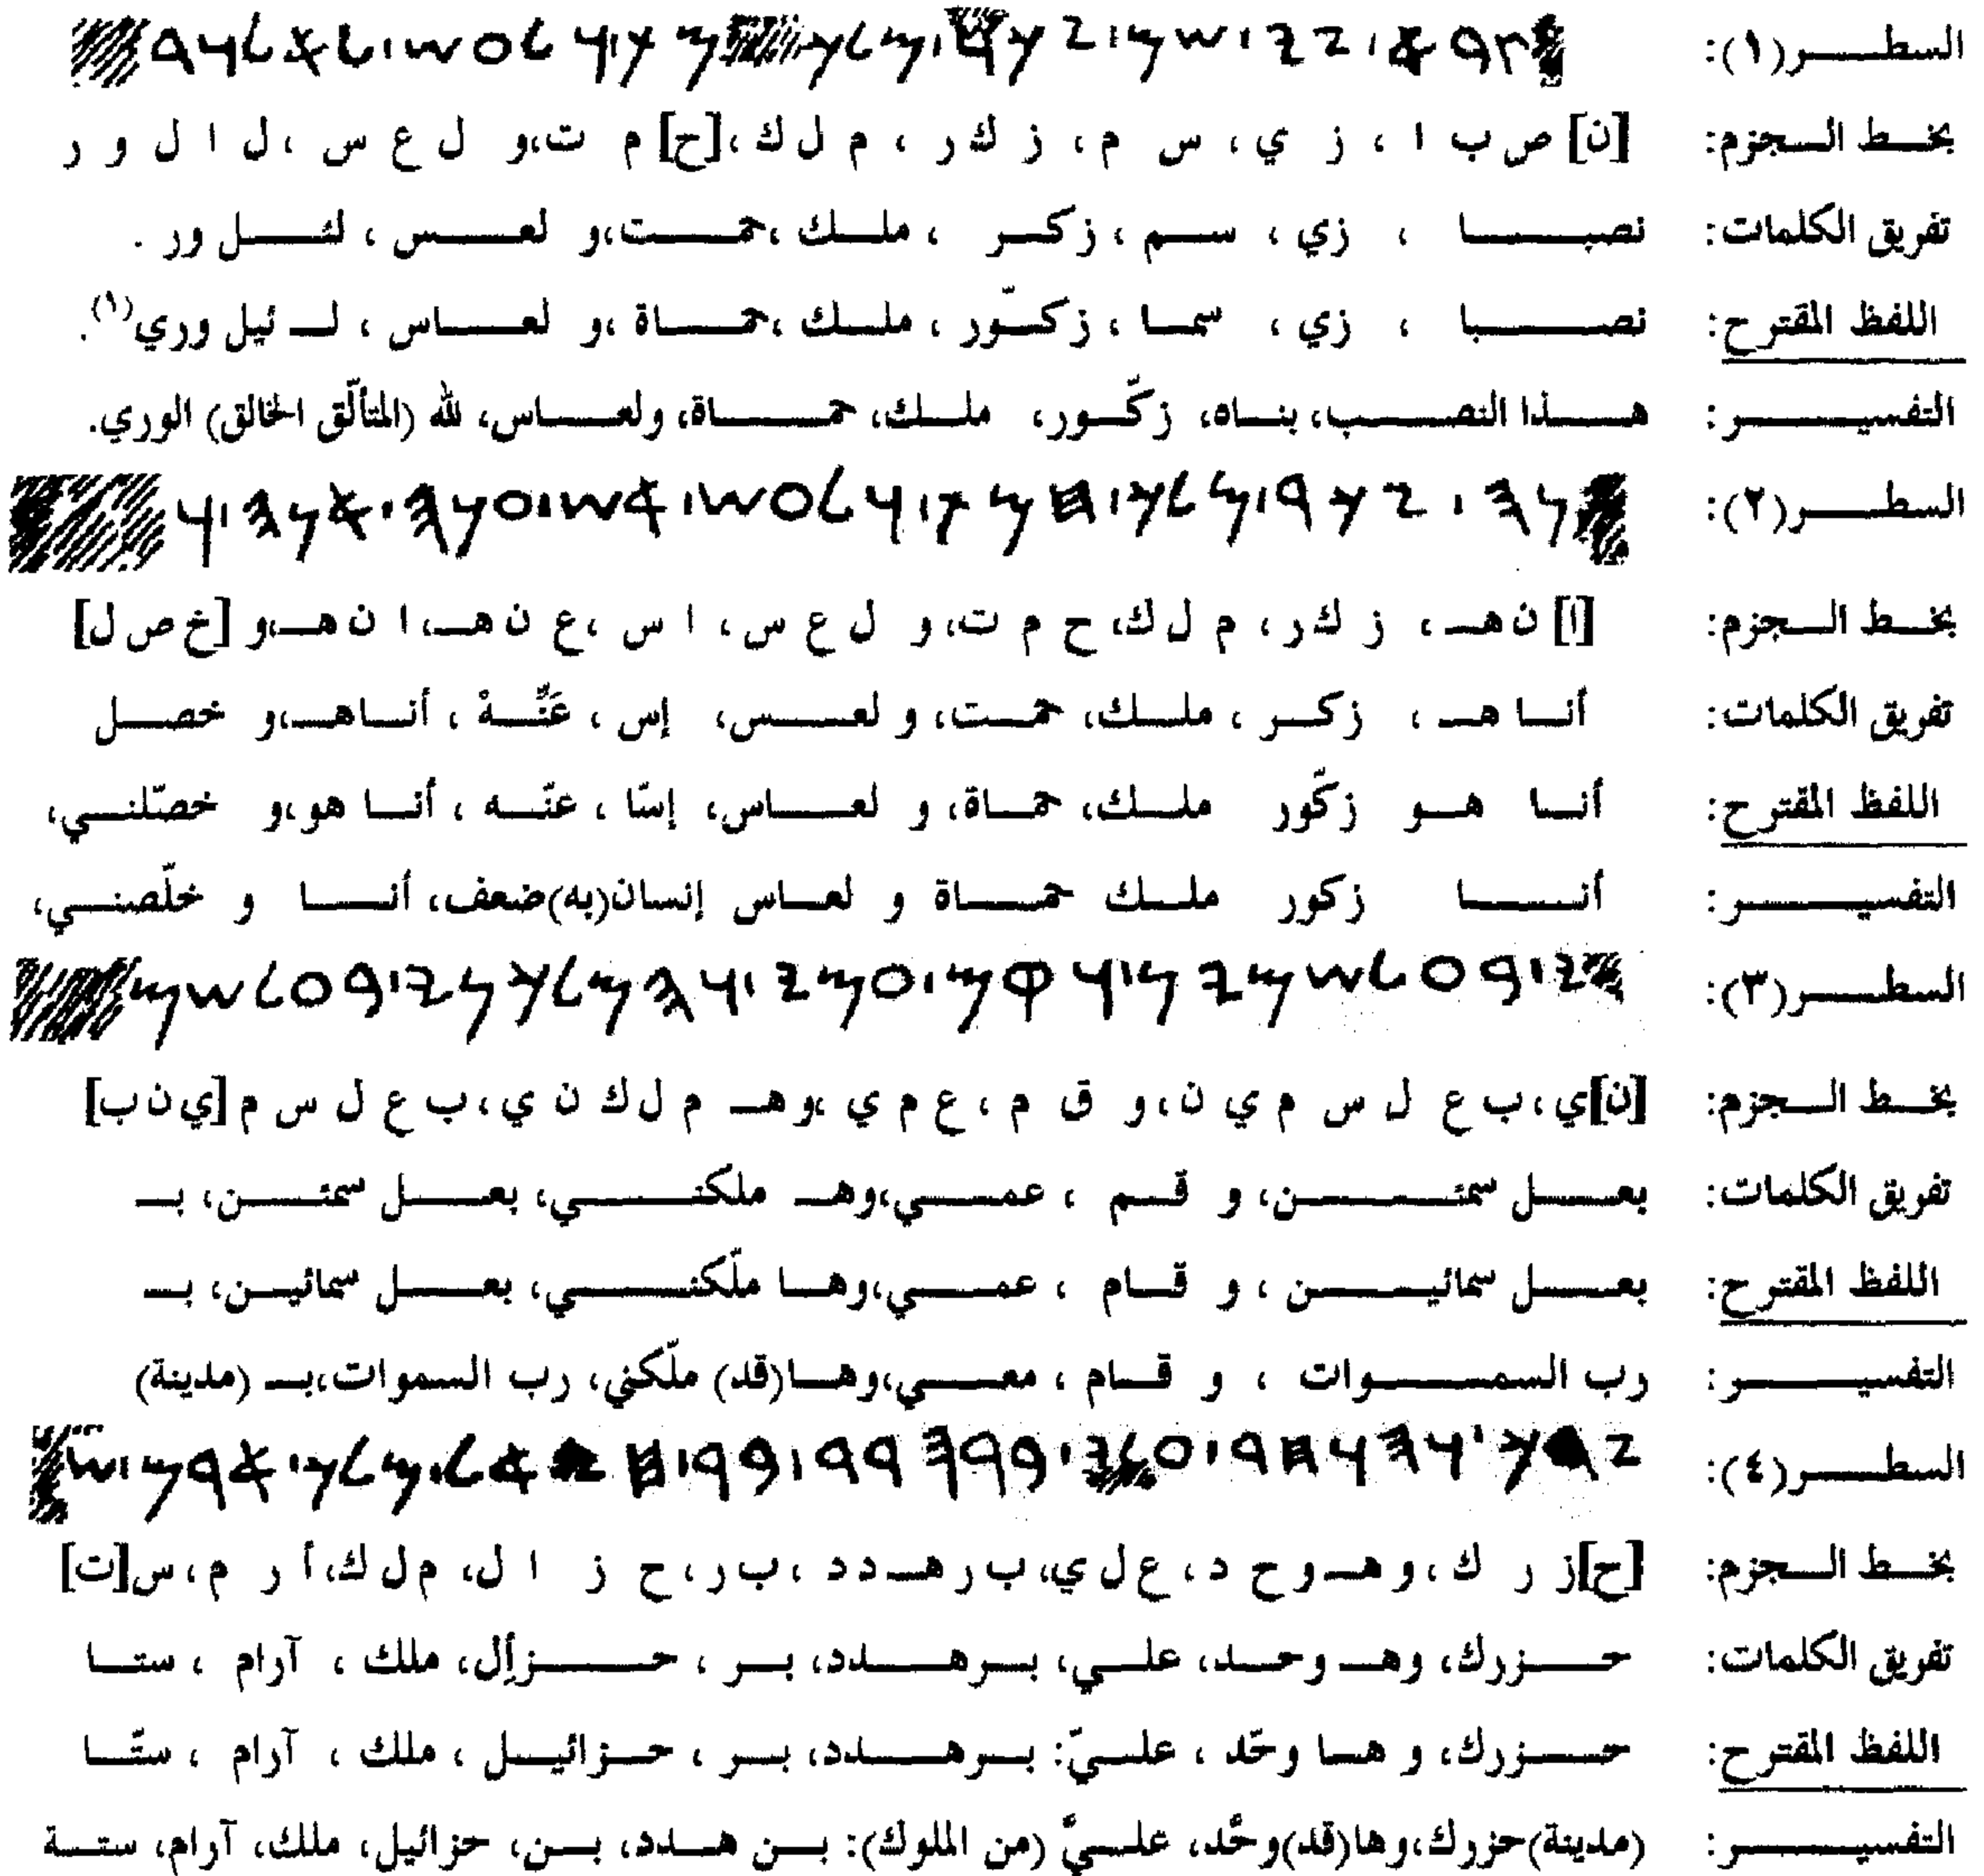 السطر(١): 𐤑𐤁𐤀𐤟𐤆𐤉𐤟𐤔𐤌𐤟𐤆𐤊𐤓𐤟𐤌𐤋𐤊 𐤌𐤕𐤟𐤅𐤋𐤏𐤔𐤟𐤋𐤀𐤋𐤅𐤓
بخط الجزم: [ن] ص ب ا ، ز ي ، س م ، ز ك ر ، م ل ك ،[ح] م ت،و ل ع س ،ل ا ل و ر
تفريق الكلمات: نصبا ، زي ، سم ، زكر ، ملك ،حمت،و لعس ، لئل ور .
اللفظ المقترح: نصبا ، زي ، سما ، زكّور ، ملك ،حماة ،و لعاس ، لـ ئيل وري(١).
التفسير: هذا النصب، بناه، زكّور، ملك، حماة، ولعاس، لله (المتألّق الخالق) الوري.
السطر(٢): 𐤍𐤄𐤟𐤆𐤊𐤓𐤟𐤌𐤋𐤊𐤟𐤇𐤌𐤕𐤟𐤅𐤋𐤏𐤔𐤟𐤀𐤔𐤟𐤏𐤍𐤄𐤟𐤀𐤍𐤄𐤟𐤅
بخط الجزم: [ا] ن هـ ، ز ك ر ، م ل ك، ح م ت، و ل ع س ، ا س ،ع ن هـ، ا ن هـ،و [خ ص ل]
تفريق الكلمات: أنا هـ ، زكر ، ملك، حمت، و لعس، إس ، عَنَّهْ ، أناهـ،و خصل
اللفظ المقترح: أنا هو زكّور ملك، حماة، و لعاس، إسّا ، عنّه ، أنا هو،و خصّلني،
التفسير: أنا زكور ملك حماة و لعاس إنسان(به)ضعف، أنا و خلّصني،
السطر(٣): 𐤉𐤟𐤁𐤏𐤋𐤔𐤌𐤉𐤍𐤟𐤅𐤒𐤌𐤟𐤏𐤌𐤉𐤟𐤅𐤄𐤌𐤋𐤊𐤍𐤉𐤟𐤁𐤏𐤋𐤔𐤌
بخط الجزم: [ن]ي ،ب ع ل س م ي ن،و ق م ، ع م ي ،وهـ م ل ك ن ي،ب ع ل س م [ي ن ب]
تفريق الكلمات: بعل سمئن، و قم ، عمي،وهـ ملكني، بعل سمئن، بـ
اللفظ المقترح: بعل سمائين ، و قام ، عمي،وها ملّكني، بعل سمائين، بـ
التفسير: رب السموات ، و قام ، معي،وها(قد) ملّكني، رب السموات،بـ (مدينة)
السطر(٤): 𐤆𐤓𐤊𐤟𐤅𐤄𐤅𐤇𐤃𐤟𐤏𐤋𐤉𐤟𐤁𐤓𐤄𐤃𐤃𐤟𐤁𐤓𐤟𐤇𐤆𐤀𐤋𐤟𐤌𐤋𐤊𐤟𐤀𐤓𐤌𐤟𐤔
بخط الجزم: [ح]ز ر ك ،و هـ و ح د ،ع ل ي،ب ر هـ د د ،ب ر، ح ز ا ل، م ل ك،أ ر م ،س[ت]
تفريق الكلمات: حزرك، وهـ وحد، علي، برهدد، بر ، حزإل، ملك ، آرام ، ستا
اللفظ المقترح: حزرك، و ها وحّد ، عليّ: برهدد، بر ، حزائيل ، ملك ، آرام ، ستّا
التفسير: (مدينة)حزرك،وها(قد)وحّد، عليَّ (من الملوك): بن هدد، بن، حزائيل، ملك، آرام، ستة